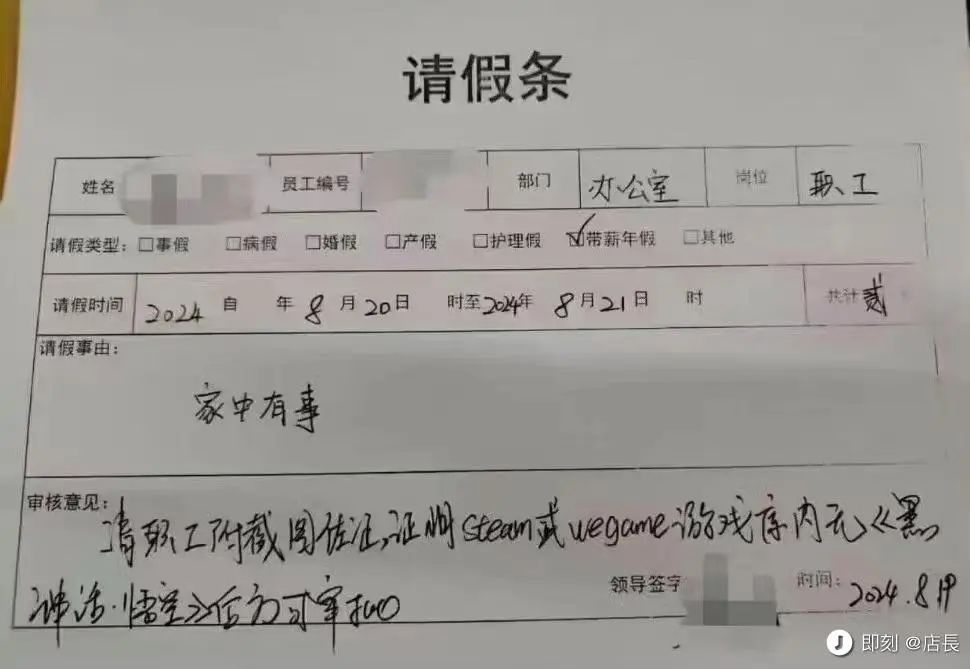 请假条
姓名 员工编号 部门 办公室 岗位 职工
请假类型: □事假 □病假 □婚假 □产假 □护理假 ☑带薪年假 □其他
请假时间 2024 自 年 8 月 20 日 时至 2024 年 8 月 21 日 时 共计 贰
请假事由:
家中有事
审核意见:
请职工附截图佐证,证明steam或wegame游戏库内无《黑
神话·悟空》后方可审批
领导签字 时间: 2024.8.19
即刻 @店長